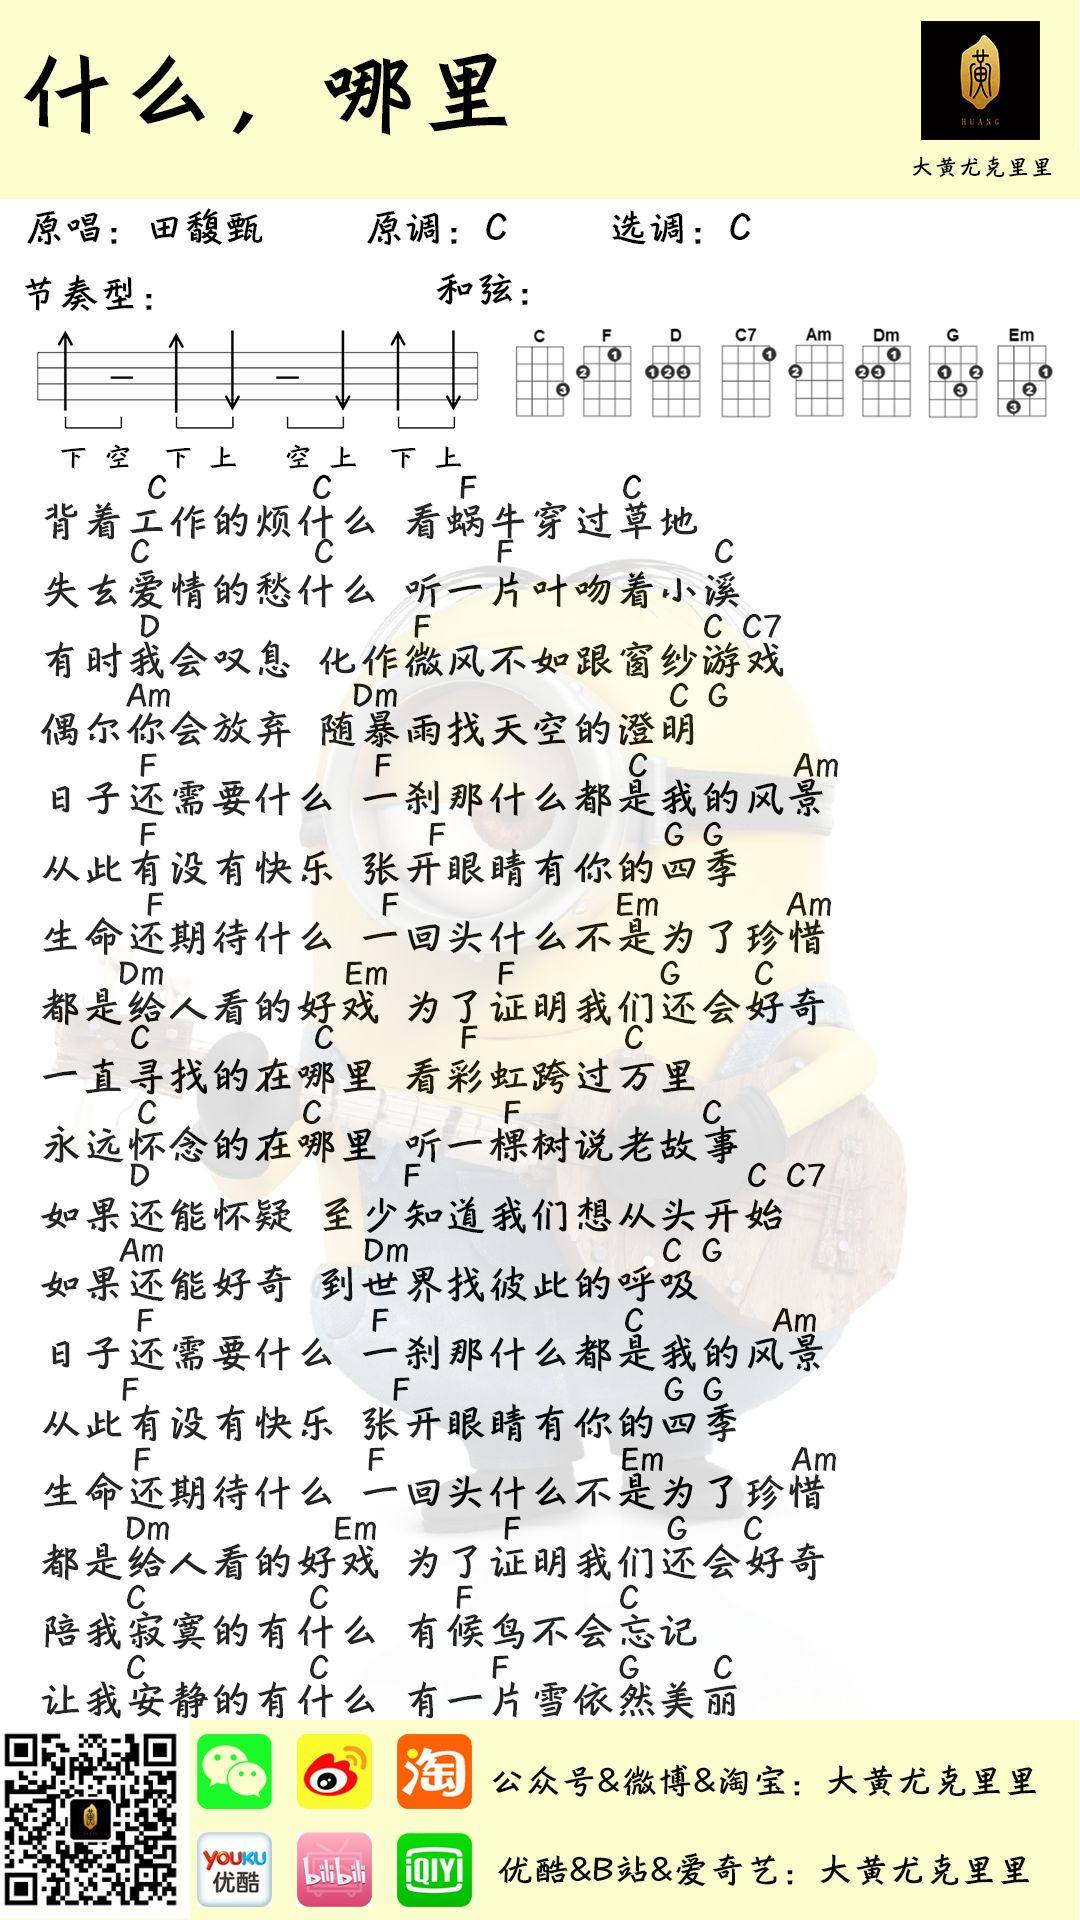 什么，哪里
黄
HUANG
大黄尤克里里
原唱：田馥甄 原调：C 选调：C
节奏型： 和弦：
C F D C7 Am Dm G Em
1 1 1 1
2 1 2 3 2 2 3 1 2
3 3 2
3
下 空 下 上 空 上 下 上
C C F C
背着工作的烦什么 看蜗牛穿过草地
C C F C
失去爱情的愁什么 听一片叶吻着小溪
D F C C7
有时我会叹息 化作微风不如跟窗纱游戏
Am Dm C G
偶尔你会放弃 随暴雨找天空的澄明
F F C Am
日子还需要什么 一刹那什么都是我的风景
F F G G
从此有没有快乐 张开眼睛有你的四季
F F Em Am
生命还期待什么 一回头什么不是为了珍惜
Dm Em F G C
都是给人看的好戏 为了证明我们还会好奇
C C F C
一直寻找的在哪里 看彩虹跨过万里
C C F C
永远怀念的在哪里 听一棵树说老故事
D F C C7
如果还能怀疑 至少知道我们想从头开始
Am Dm C G
如果还能好奇 到世界找彼此的呼吸
F F C Am
日子还需要什么 一刹那什么都是我的风景
F F G G
从此有没有快乐 张开眼睛有你的四季
F F Em Am
生命还期待什么 一回头什么不是为了珍惜
Dm Em F G C
都是给人看的好戏 为了证明我们还会好奇
C C F C
陪我寂寞的有什么 有候鸟不会忘记
C C F G C
让我安静的有什么 有一片雪依然美丽
淘 公众号&微博&淘宝：大黄尤克里里
YOUKU 优酷 bilibili iQIYI 优酷&B站&爱奇艺：大黄尤克里里